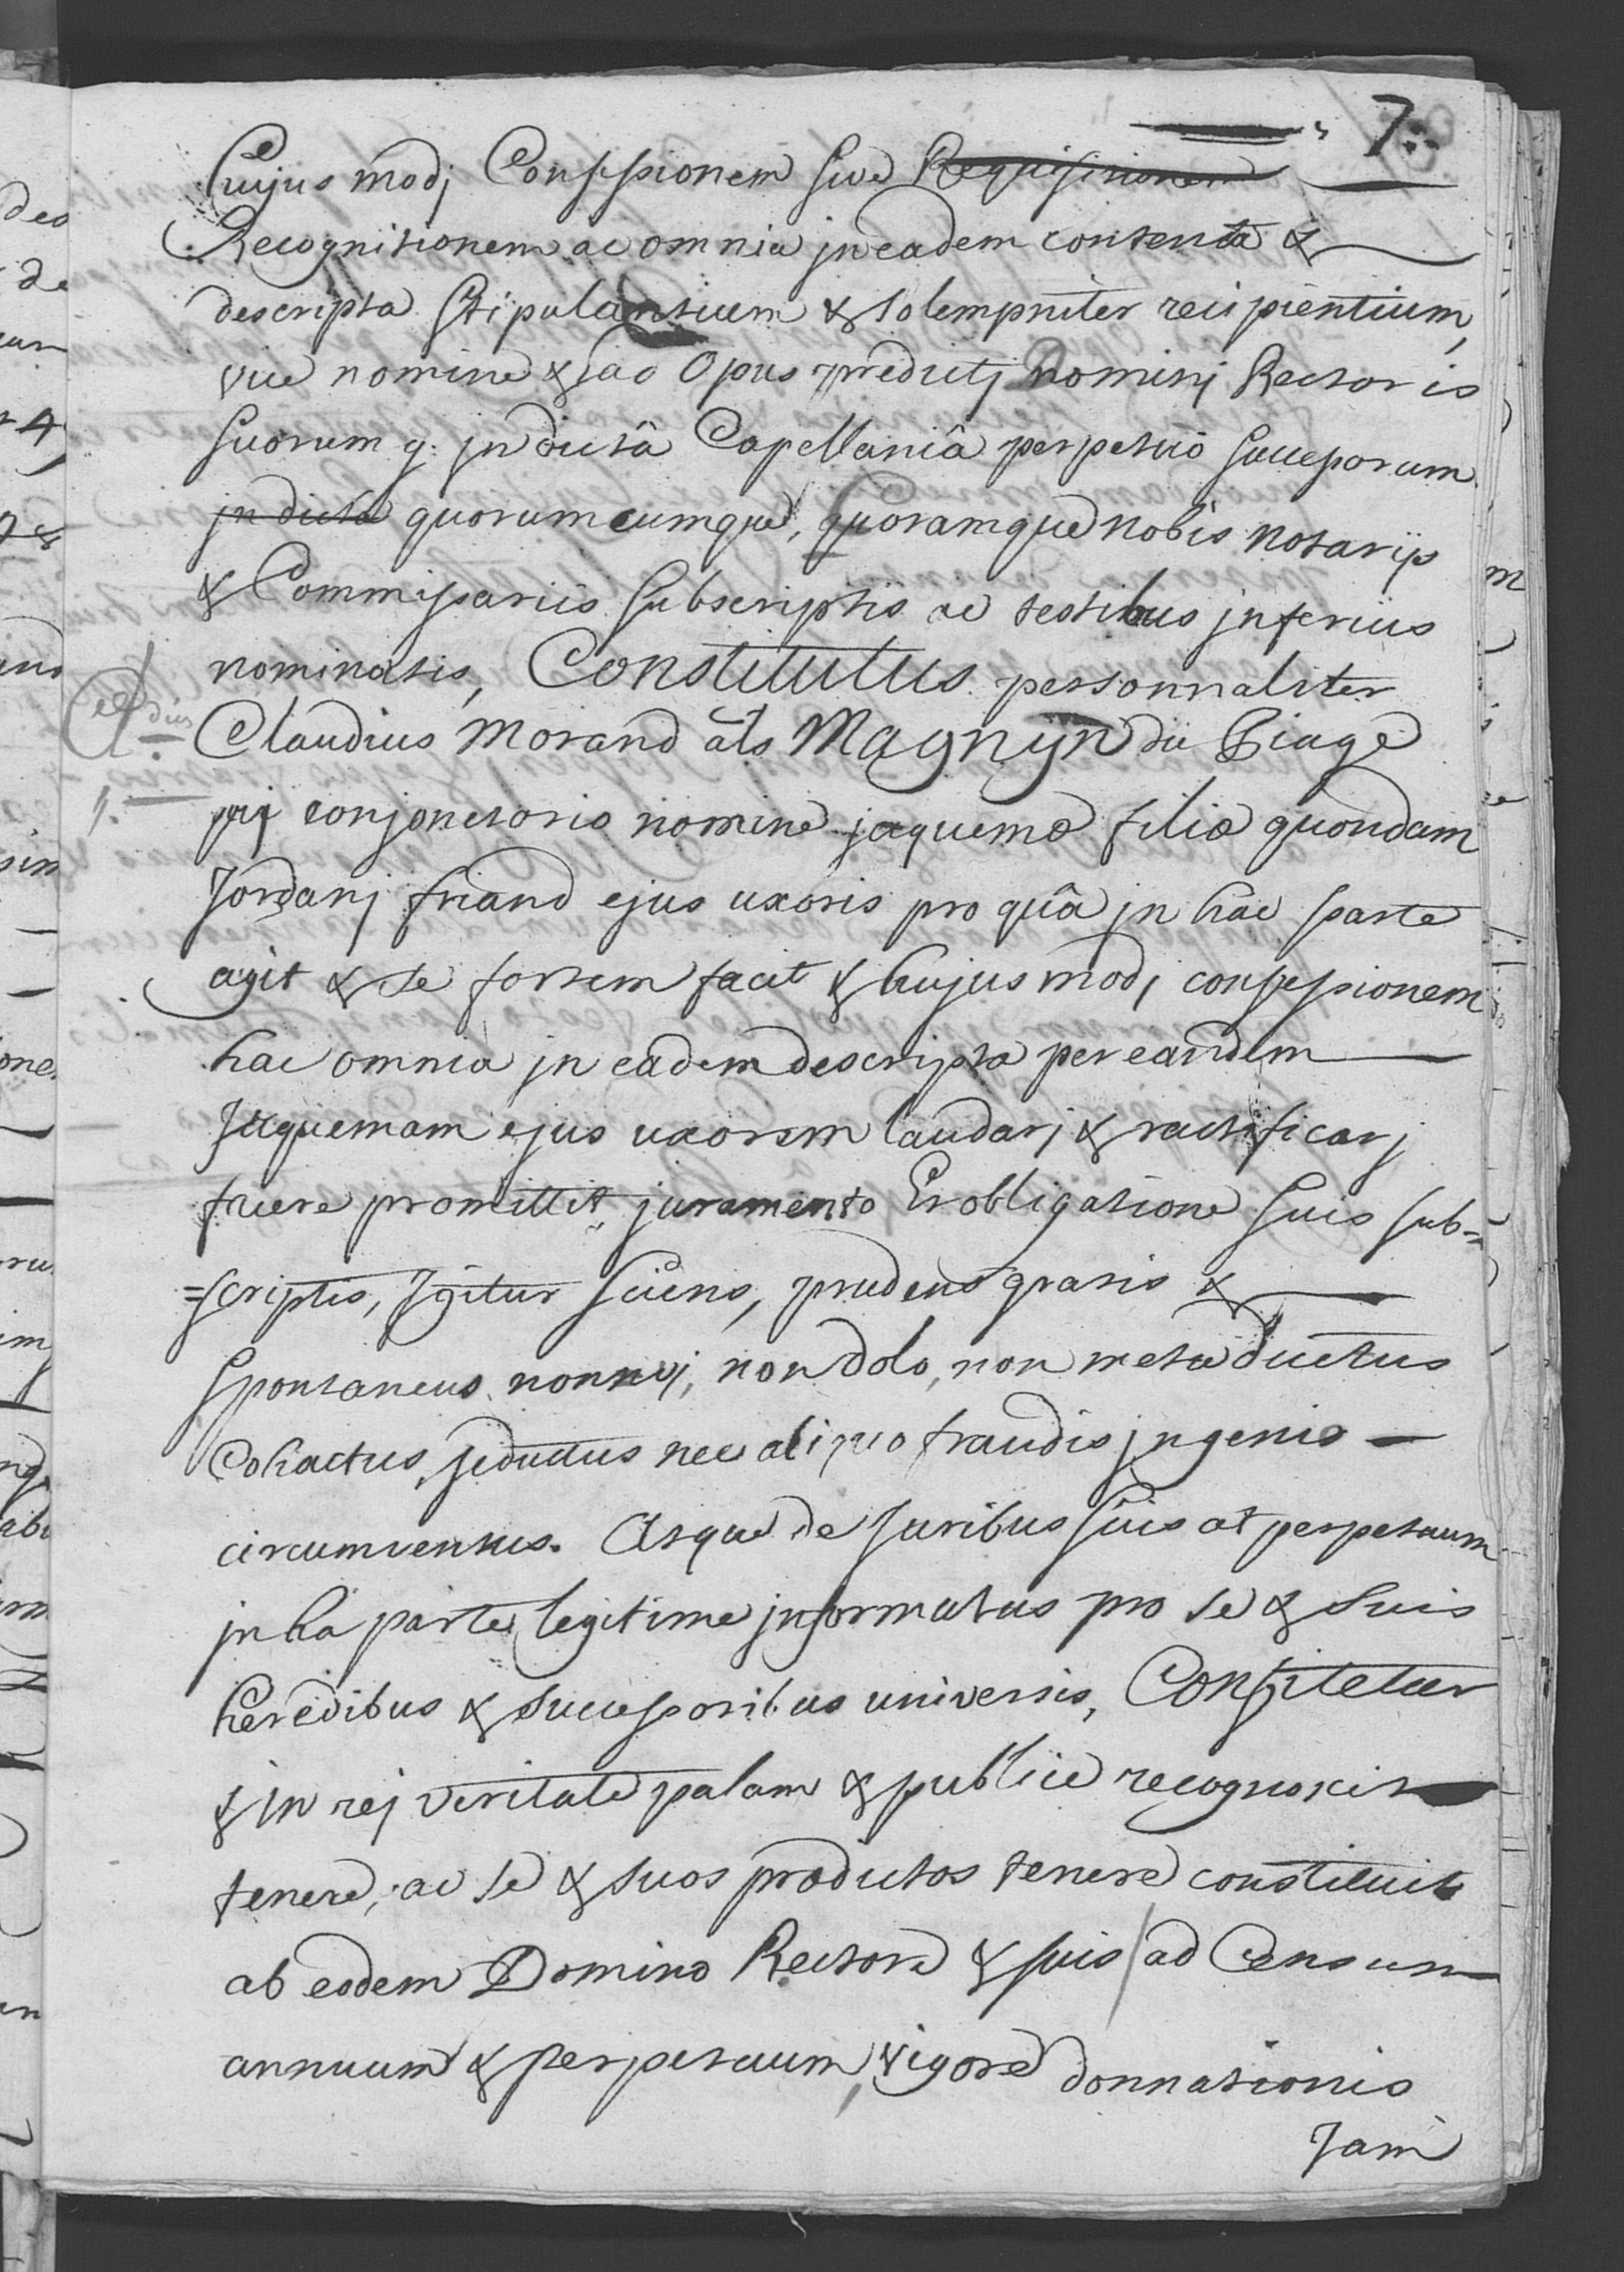 7.
Cujus modj Confessionem sive Requisitionem
Recognitionem ac omnia jn eadem contenta &
descripta Stipulantium & solempniter recipientium,
vice nomine & ad Opus predictj Dominj Rectoris
suorum q. jn dictâ Capellaniâ perpetuò successorum
jn dicta quorumcumque, quoramque nobis notariis
& Commissariis subscriptis ac testibus jnferius
nominatis, Constitutus personnaliter
Claudius Morand als Magnyn du Biage
conjonctorio nomine jaquemæ filiæ quondam
Jordanj friand ejus uxoris pro quâ jn hac parte
agit & se fortem facit & hujus modj confessionem
hac omnia jn eadem descripta per eandem
Jaquemam ejus uxorem laudarj & ractificarj
facere promittit, juramento Et obligatione suis sub=
=scriptis, Igitur sciens, prudens gratis &
spontaneus non vj, non dolo, non metu ductus
Cohactus, seductus nec aliquo fraudis jngenio
circumventus. Atque de juribus suis at perpetuum
jn ha parte legitime jnformatus pro se & suis
heredibus & successoribus universis, Confitetur
& in rej veritate palam & publice recognoscit
tenere, ac se & suos predictos tenere constituit
ab eodem Domino Rectore & suis / ad Censum
annuum & perpetuum, vigore donnationis
Jam